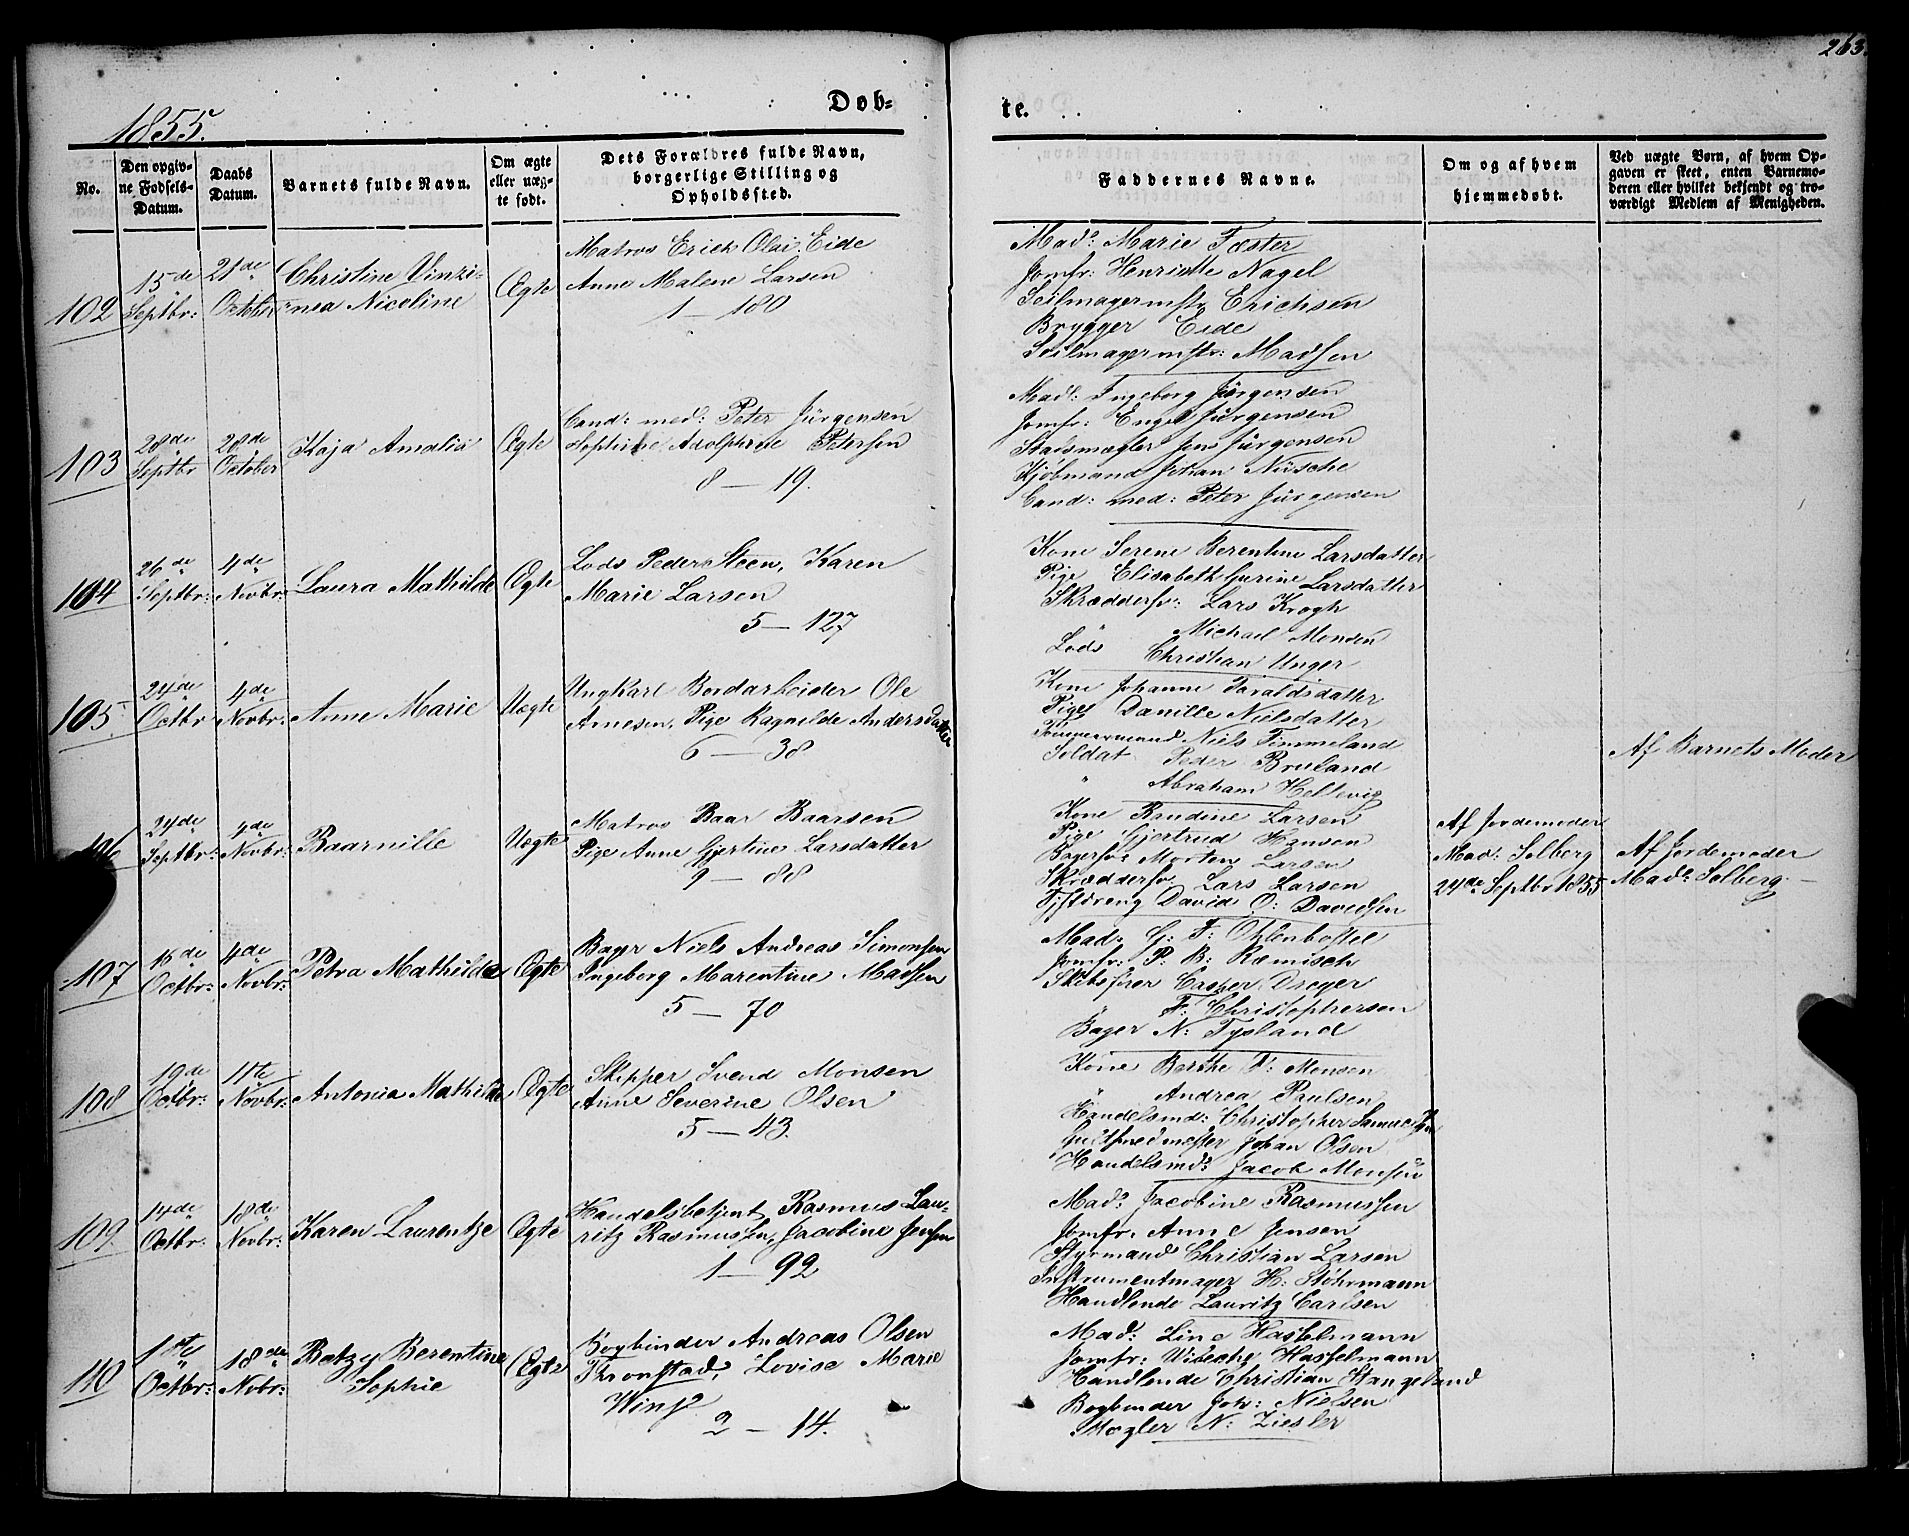 263.
1855.
Døb-
te.
No.
Den opgiv-
ne Fødsels-
Datum.
Daabs
Datum.
Barnets fulde Navn.
Om ægte
eller uæg-
te født.
Dets Forældres fulde Navn,
borgerlige Stilling og
Opholdssted.
Faddernes Navne.
Om og af hvem
hjemmedøbt.
Ved uægte Børn, af hvem Op-
gaven er skeet, enten Barnemo-
deren eller hvilket bekjendt og tro-
værdigt Medlem af Menigheden.
102
15de
Septbr:
21de
October
Christine Vinzi-
nea Nicoline
Ægte
Matros Erick Olai Eide
Anne Malene Larsen
1 — 180
Mad: Marie Fæster
Jomfr: Henriette Nagel
Seilmagermstr Erichsen
Brygger Eide
Seilmagermstr: Madsen
103
28de
Septbr
28de
October
Kaja Amalia
Ægte
Cand: med: Peter Jürgensen
Sophie Adolphine Petersen
8 — 19.
Mad: Ingeborg Jürgensen
Jomfr: Engel Jürgensen
Stadsmægler Jens Jürgensen
Kjøbmand Johan Nüsche
Cand: med: Peter Jürgensen
104
26de
Septbr:
4de
Novbr:
Laura Mathilde
Ægte
Lods Peder Steen, Karen
Marie Larsen
5 — 127
Kone Serene Berentine Larsdatter
Pige Elisabeth Gurine Larsdatter
Skrædersv: Lars Krogh
" Michael Monsen
Lods Christian Unger
105
24de
Octbr
4de
Novbr:
Anne Marie
Uægte
Ungkarl Bordarbeider Ole
Arnesen, Pige Ragnilde Andersdatter
6 — 38
Kone Johanne Taraldsdatter
Pige Danille Nielsdatter
Tømmermand Niels Timmeland
Soldat Peder Bruland
" Abraham Hellevig
Af Barnets Moder
106
24de
Septbr:
4de
Novbr:
Baarnille
Uægte
Matros Baar Baarsen
Pige Anne Gjertine Larsdatter
9 — 88
Kone Randine Larsen
Pige Gjertrud Hansen
Bagersv: Morten Larsen
Skræddersv Lars Larsen
Tjstdreng David O: Davidsen
Af Jordemoder
Mad: Solberg
24de Septbr 1855
Af Jordemoder
Mad: Solberg. —
107
16de
Octbr:
4de
Novbr:
Petra Mathilde
Ægte
Bager Niels Andreas Simonsen
Ingeborg Marentine Madsen
5 — 70
Mad: G: F: Ohlenbostel
Jomfr: P: B: Ræmisch
Skibsfører Casper Dreyer
" F: Christophersen
Bager N: Tysland
108
19de
Octbr:
11te
Novbr:
Antonia Mathilde
Ægte
Skipper Svend Monsen
Anne Severine Olsen
5 — 43.
Kone Berthe T: Monsen
" Andrea Paulsen
Handelsmd: Christopher
Guldsmedmester Johan Olsen
Handelsmd: Jacob Monsen
109
14de
Octbr:
18de
Novbr:
Karen Laurentze
Ægte
Handelsbetjent Rasmus Lau-
ritz Rasmussen, Jacobine Jensen
1 — 92
Mad: Jacobine Rasmussen
Jomfr. Anne Jensen
Styrmand Christian Larsen
Instrumentmager H: Støhrmann
Handlende Lauritz Carlsen
110
1ste
Octbr:
18de
Novbr:
Betzy Berentine
Sophie
Ægte
Bogbinder Andreas Olsen
Thronstad, Lovise Marie
Wing
2 — 14.
Mad: Line Hasselmann
Jomfr: Wibeche Hasselmann
Handlende Christian Stangeland
Bogbinder Joh: Nielsen
Mægler N: Ziesler